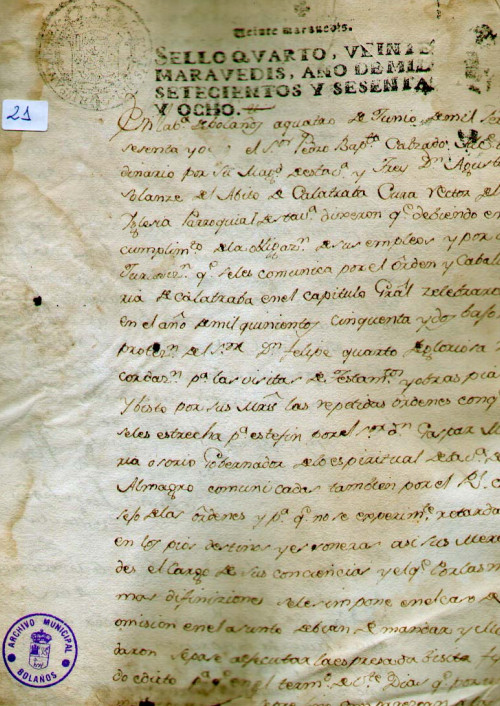 Veinte maravedis.
SELLO QVARTO, VEINTE
MARAVEDIS, AÑO DE MIL
SETECIENTOS Y SESENTA
Y OCHO.
21
En la Vª de bolaños a quatro de Junio, de mil
sesenta y oc el Sr. Pedro Bapta. Calzado,
dinario por su Magd. destava. y Frey Dn. Agust
Solanze del Abito de Calatraba Cura Rector de
Yglesia Parroquial destava. dixeron qe. debiendo en
cumplimto. de la obligazn. de sus empleos y por
Jurisdicn. qe. seles comunica por el Orden y Caballe
ria de Calatraba en el capitulo Gral zelebrado
en el año de mil quinientos cinquenta y dos bajo
protezn. del Sr. Dn. felipe quarto de gloriosa
cordazn. pa. las visitas de Testamtos. y obras pia
Y bisto por sus Mrds. las repetidas ordenes conq
seles estrecha pa. este fin por el Sr. Dn. Gaspar
ria osorio Gobernador de lo espiritual de la va. de
Almagro comunicadas tambien por el Rl. C
sejo de las Ordenes y pa. qe. no se experimte. retarda
en los pios destinos y esonerar asi sus Merce
des el Cargo de sus conciencias y el qe. por las mis
mas difiniziones seles impone en el caso de
omision en el asunto debian de mandar y
daron se pase a ejecutar la espresada bisita
do edicto pa. qe. en el termo. de siete Dias
ARCHIVO MUNICIPAL
BOLAÑOS